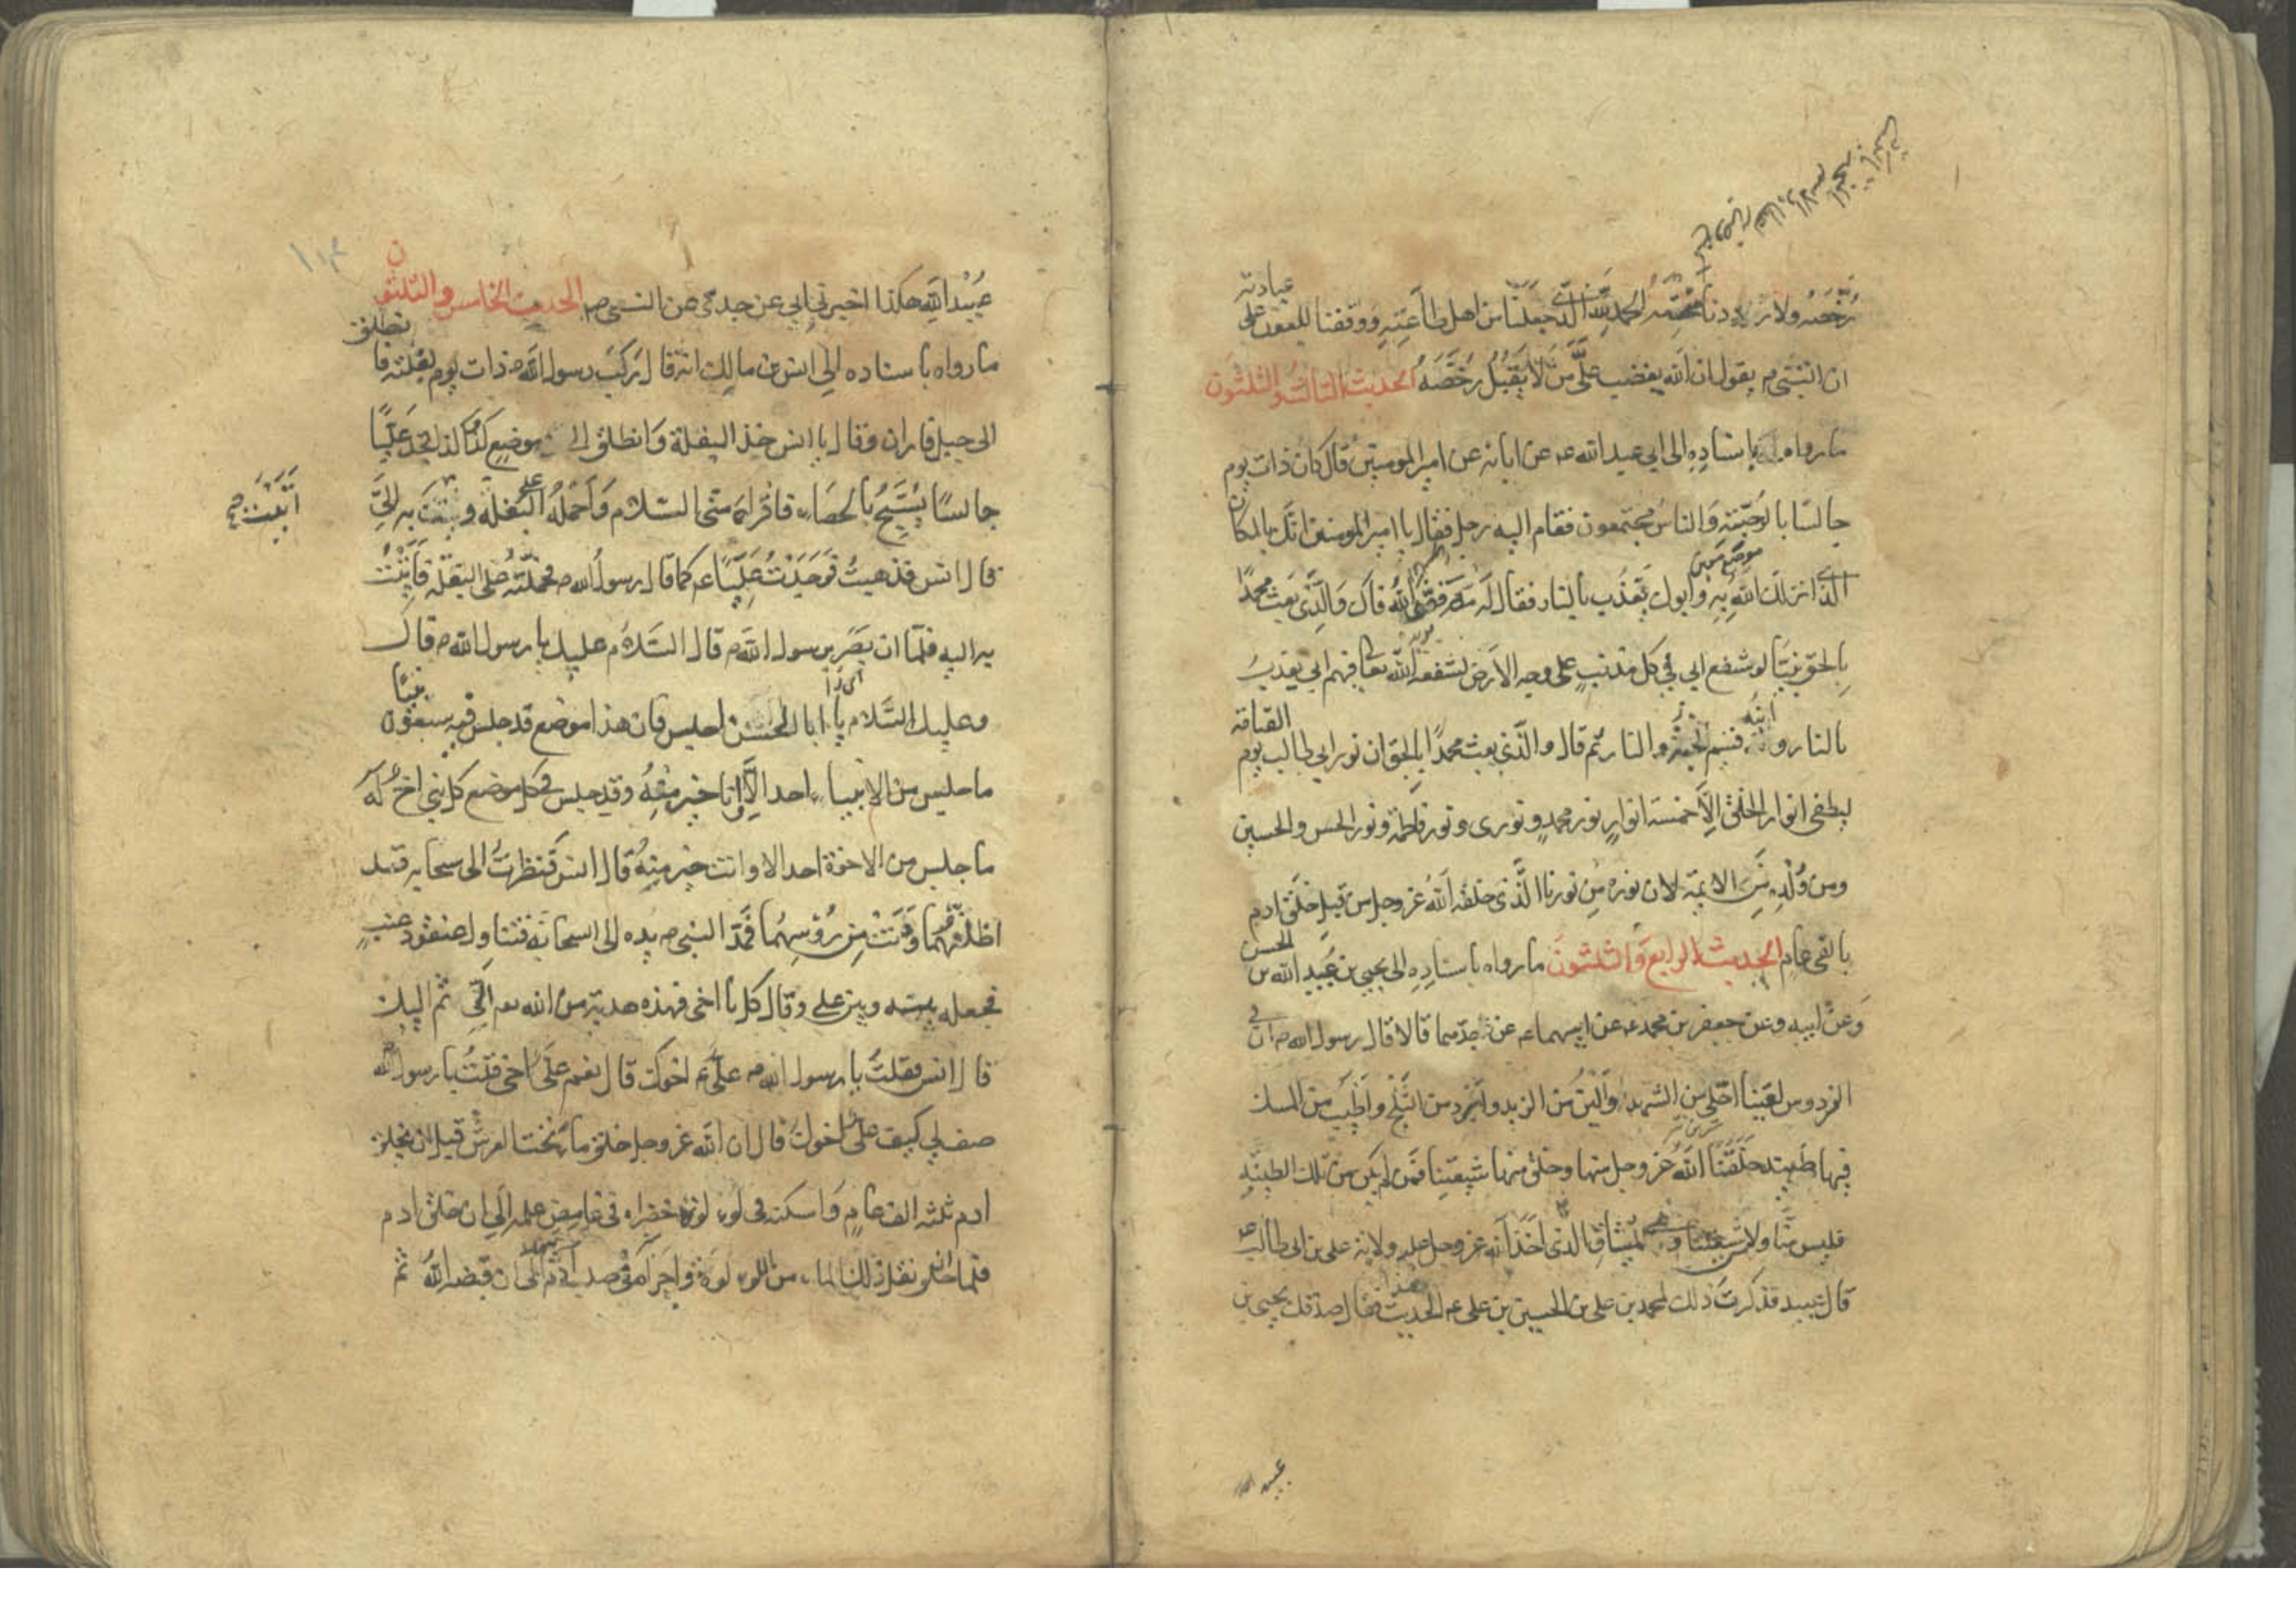 عبادته
رخصه ولا الحمد لله الذي جعلنا من اهل طاعته ووفقنا للعون على
ان النبي ص يقول ان الله يغضب على من لا يقبل رخصه الحديث الثالث والثلثون
ما رواه باسناده الى ابي عبد الله عم عن ابائه عن امير المومنين قال كان ذات يوم
جالسا بالرحبة والناس مجتمعون فقام اليه رجل فقال يا امير المومنين انك بالمكان
الذي انزلك الله به وابوك يعذب بالنار فقال له مه فض الله فاك والذي بعث محمدا
بالحق نبيا لو شفع ابي في كل مذنب على وجه الارض لشفعه الله تعا فيهم ابي يعذب
القيامة
بالنار وابنه قسيم الجنة والنار ثم قال والذي بعث محمدا بالحق ان نور ابي طالب يوم
ليطفي انوار الخلق الا خمسة انوار نور محمد ونوري ونور فاطمة ونور الحسن والحسين
ومن ولده من الايمة لان نوره من نورنا الذي خلقه الله عز وجل من قبل خلق ادم
الحسن
بالفي عام الحديث الرابع والثلثون ما رواه باسناده الى يحيى بن عبيد الله بن
وعن ابيه وعن جعفر بن محمد عم عن ابيهما عم عن جدهما قالا قال رسول الله ص ان في
الفردوس لعينا احلى من الشهد والين من الزبد وابرد من الثلج واطيب من المسك
فيها طينة خلقنا الله عز وجل منها وخلق منها شيعتنا فمن لم يكن من تلك الطينة
فليس منا ولا من شيعتنا وهي الميثاق الذي اخذ الله عز وجل عليه ولاية علي بن ابي طالب عم
قال عبيد فذكرت ذلك لمحمد بن علي بن الحسين بن علي عم هذا الحديث فقال صدقك يحيى بن
عبيد الله
١١٣
عبيد الله هكذا اخبرني ابي عن جدي عن النبي ص الحديث الخامس والثلثون
ما رواه باسناده الى انس بن مالك انه قال ركب رسول الله ص ذات يوم بغلته فانطلق
الى جبل فاران وقال يا انس خذ البغلة وانطلق الى موضع كذا وكذا تجد عليا
جالسا يسبح بالحصاء فاقراه مني السلام واحمله على البغلة وبه الي
قال انس فذهبت فوجدت عليا عم كما قال رسول الله ص فحملته على البغلة فاتيت
به اليه فلما ان بصر برسول الله ص قال السلام عليك يا رسول الله ص قال
وعليك السلام يا ابا الحسن اجلس فان هذا موضع قد جلس فيه سبعون نبيا
ما جلس من الانبياء احد الا وانا خير منه وقد جلس في كل موضع كل نبي اخ له
ما جلس من الاخوة احد الا وانت خير منه قال انس فنظرت الى سحابة قد
اظلتهما ودنت من رؤسهما فمد النبي ص يده الى السحابة فتناول عنقود عنب
فجعله بينه وبين علي وقال كل يا اخي فهذه هدية من الله تعا الي ثم اليك
قال انس فقلت يا رسول الله ص علي عم اخوك قال نعم علي اخي فقلت يا رسول الله
صف لي كيف علي اخوك قال ان الله عز وجل خلق ماء تحت العرش قبل ان يخلق
ادم بثلثة الف عام واسكنه في لؤلؤة خضراء في غامض علمه الى ان خلق ادم
فلما خلق نقل ذلك الماء من اللؤلؤة واجراه في صلب ادم الى ان قبضه الله ثم